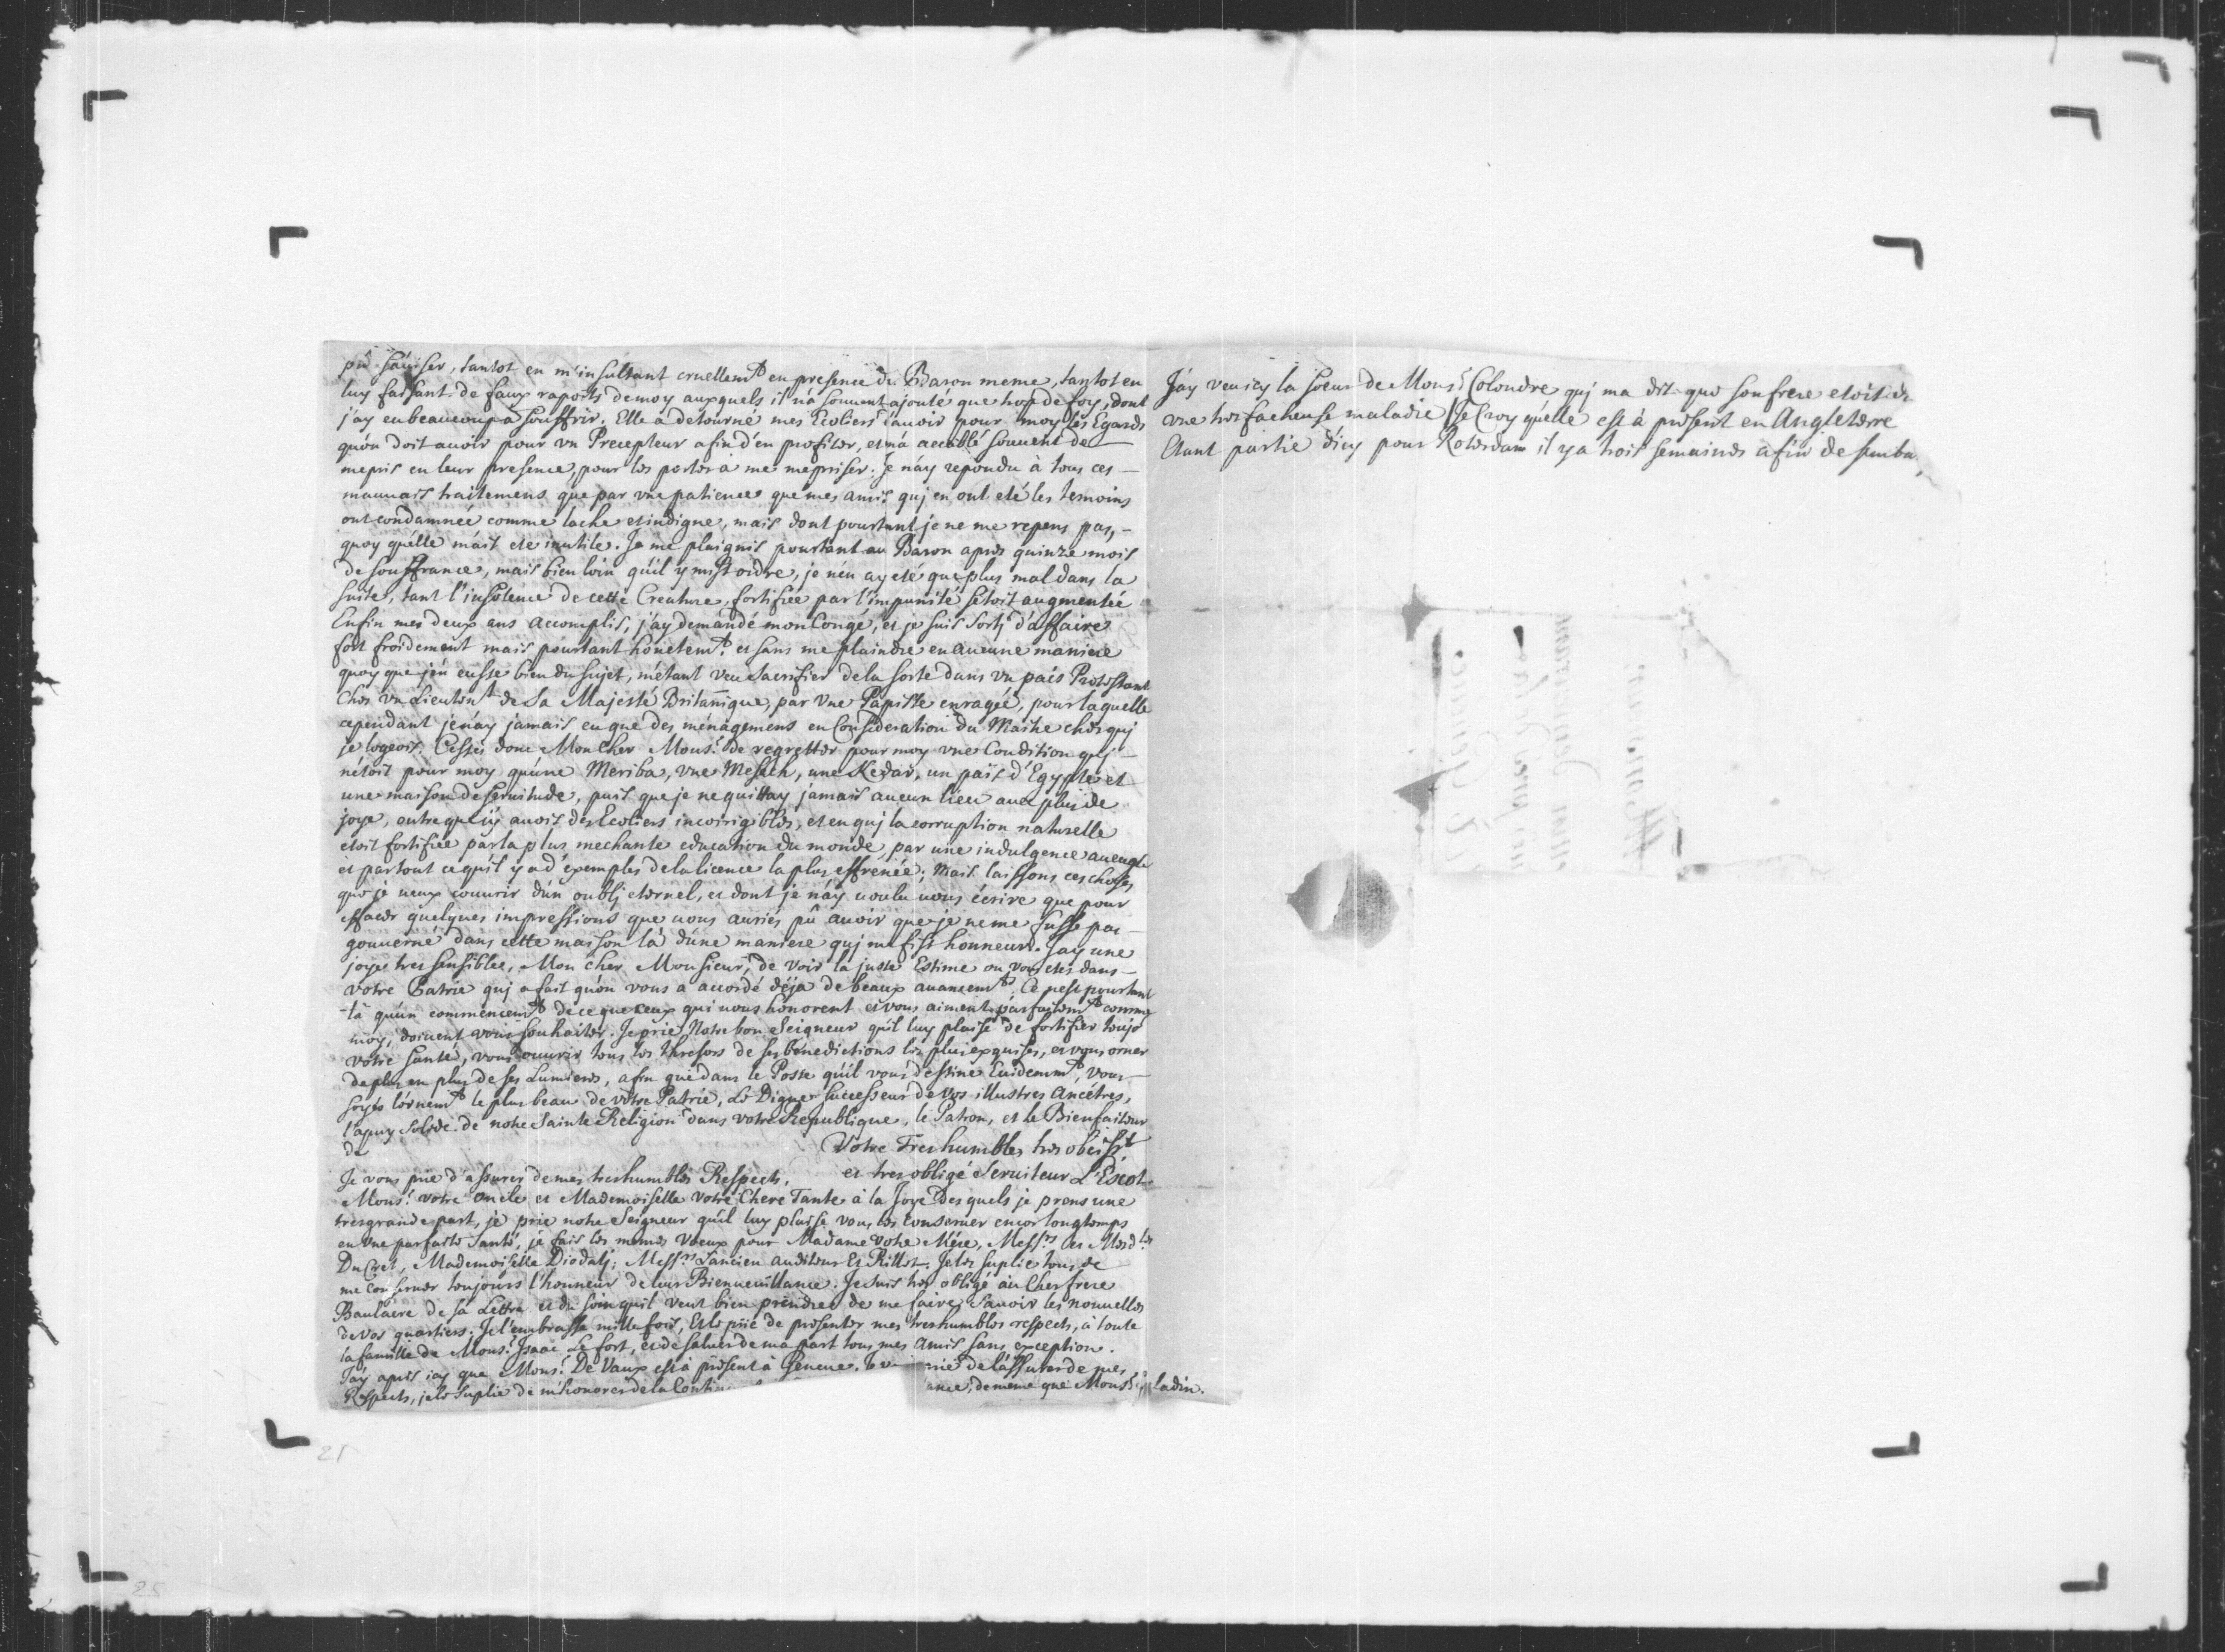 pû s'auiser, tantot en m'insultant cruellemt en presence du Baron meme, tantot en
luy faisant de faux raports de moy auxquels il n'a souuent ajouté que trop de foy, dont
j'ay eu beaucoup a souffrir. Elle a detourné mes Ecoliers d'auoir pour moy les Egards
qu'on doit auoir pour vn Precepteur afin d'en profiter, et m'a accablé souuent de
mepris en leur presence, pour les porter à me mepriser. Je n'ay repondu à tous ces
mauuais traitemens que par vne patience que mes amis quj en ont eté les temoins
ont condamnée comme lache et indigne, mais dont pourtant je ne me repens pas,
quoy qu'elle m'ait eté inutile. Je me plaignis pourtant au Baron apres quinze mois
de souffrance, mais bien loin qu'il y mist ordre, je n'en ay eté que plus mal dans la
suite, tant l'insolence de cette Creature, fortifiée par l'impunité s'etoit augmentée
Enfin mes deux ans accomplis, j'ay demandé mon Congé, et je suis sortj d'affaire
fort froidement mais pourtant honetemt. et sans me plaindre en aucune maniere
quoy que j'en eusse bien du sujet, m'étant veu sacrifier de la sorte dans vn païs Protestant
chez vn Lieutent de Sa Majesté Britannique, par vne Papiste enragée, pour laquelle
cependant je n'ay jamais eu que des ménagemens en Consideration du Maitre chez quj
je logeois. Cessés donc Mon Cher Monsr. de regretter pour moy vne Condition quj
n'étoit pour moy qu'une Meriba, vne Mesech, une Kedar, un païs d'Egypte et
une maison de seruitude, puis que je ne quittay jamais aucun lieu auec plus de
joye, outre que j'y auois des Ecoliers incorrigibles, et en quj la corruption naturelle
etoit fortifiée par la plus mechante education du monde, par une indulgence aueugle
et par tout ce qu'il y a d'exemples de la licence la plus effrenée; Mais laissons ces choses
que je ueux couurir d'un oublj eternel, et dont je n'ay uoulu uous écrire que pour
effacer quelques impressions que uous auriés pû auoir que je ne me fusse pas
gouuerné dans cette maison là d'une maniere quj me fist honneur. J'ay une
joye tres sensible, Mon cher Monsieur, de voir la juste Estime ou vous etes dans
votre Patrie quj a fait qu'on vous a accordé déja de beaux auancemts. Ce n'est pourtant
là qu'un commencemt de ce que ceux qui uous honorent et vous aiment parfaitemt comme
moy, doiuent vous souhaiter. Je prie Notre bon Seigneur qu'il luy plaise de fortifier toujo
votre santé, vous ouurir tous les thresors de ses bénedictions les plus exquises, et vous orner
de plus en plus de ses Lumieres, afin que dans le Poste qu'il vous destine Euidemmt, vous
soyés l'ornemt le plus beau de votre Patrie, Le Digne successeur de vos illustres Ancêtres,
l'apuy solide de notre Sainte Religion dans votre Republique, le Patron, et le Bienfaiteur
de Votre Tres humble, tres obeisst
et tres obligé Seruiteur L'Escot
Je vous prie d'assurer de mes tres humbles Respects,
Monsr. votre oncle et Mademoiselle votre Chere Tante à la Joye des quels je prens une
tres grande part, je prie notre Seigneur qu'il luy plaise vous les conseruer encor longtemps
en vne parfaite santé, je fais les memes Voeux pour Madame votre Mére, Messrs. et Mesdlles
Du Cret, Mademoiselle Diodatj; Messrs. l'ancien auditeur Et Rillet. Je les suplie tous de
me conseruer toujours l'honneur de leur Bienueuillance. Je suis tres obligé au Cher frere
Baulacre de sa Lettre et du soin qu'il veut bien prendre de me faire sauoir les nouuelles
de vos quartiers. Je l'embrasse mille fois, Et le prie de presenter mes tres humbles respects, à toute
la famille de Monsr. Isaac Le fort, et de saluer de ma part tous mes Amis sans exception.
J'ay apris icy que Monsr. De Vaux est à present à Geneue. Je prie de l'assurer de mes
Respects, je le suplie de m'honorer de la de meme que Monsr
J'ay veu icy la soeur de Monsr. Colondre quj m'a dit que son frere etoit
vne tres facheuse maladie Je Croy qu'elle est à present en Angleterre
Etant partie d'icy pour Roterdam il y a trois semaines afin de
25
25